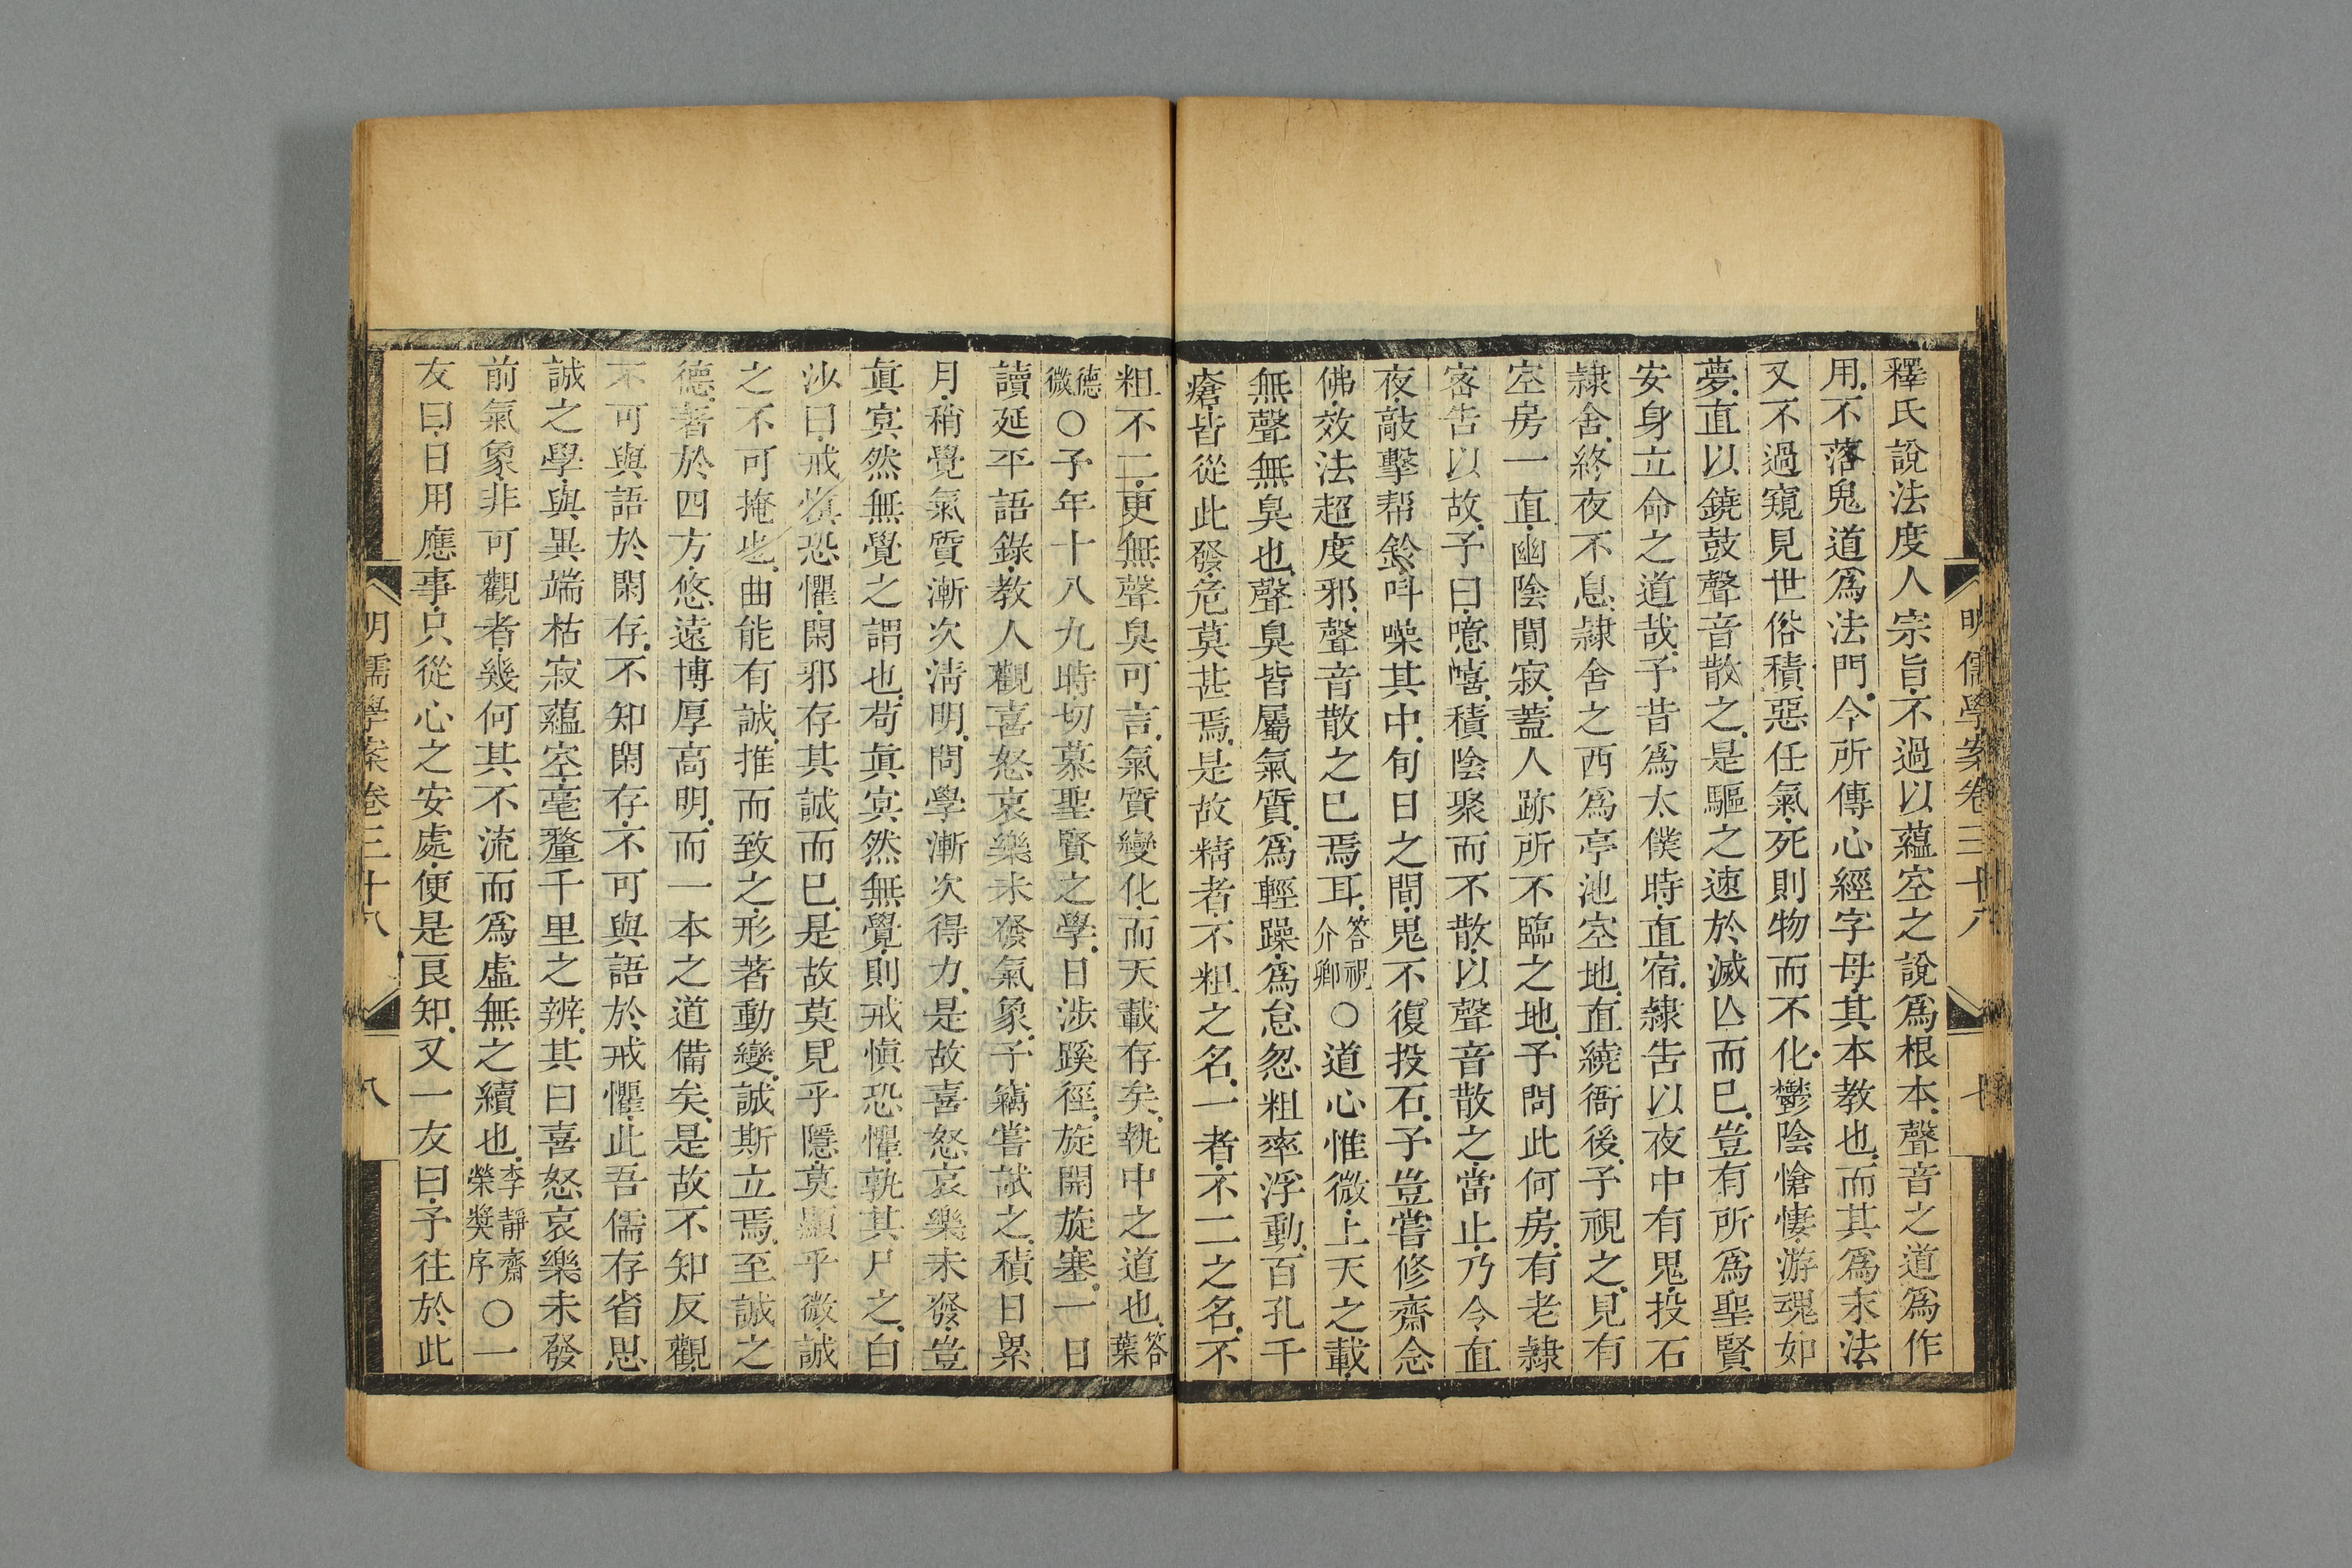 明儒學案卷三十八 七
釋氏說法度人宗旨不過以蘊空之說爲根本聲音之道爲作
用不落鬼道爲法門今所傳心經字母其本教也而其爲末法
又不過窺見世俗積惡任氣死則物而不化鬱陰愴悽游魂如
夢直以鐃鼓聲音散之是驅之速於滅亾而已豈有所爲聖賢
安身立命之道哉予昔爲太僕時直宿隸告以夜中有鬼投石
隸舍終夜不息隸舍之西爲亭池空地直繞衙後予視之見有
空房一直幽陰閴寂蓋人跡所不臨之地予問此何房有老隸
密告以故予曰噫嘻積陰聚而不散以聲音散之當止乃令直
夜敲擊帮鈴呌噪其中旬日之間鬼不復投石予豈嘗修齋念
佛效法超度邪聲音散之已焉耳答祝介卿○道心惟微上天之載
無聲無臭也聲臭皆屬氣質爲輕躁爲怠忽粗率浮動百孔千
瘡皆從此發危莫甚焉是故精者不粗之名一者不二之名不
粗不二更無聲臭可言氣質變化而天載存矣執中之道也答葉
德微○予年十八九時切慕聖賢之學日涉蹊徑旋開旋塞一日
讀延平語錄教人觀喜怒哀樂未發氣象予竊嘗試之積日累
月稍覺氣質漸次淸明問學漸次得力是故喜怒哀樂未發豈
眞㝠然無覺之謂也苟眞㝠然無覺則戒愼恐懼孰其尸之白
沙曰戒愼恐懼閑邪存其誠而已是故莫見乎隱莫顯乎微誠
之不可掩也曲能有誠推而致之形著動變誠斯立焉至誠之
德著於四方悠遠博厚高明而一本之道備矣是故不知反觀
不可與語於閑存不知閑存不可與語於戒懼此吾儒存省思
誠之學與異端枯寂蘊空毫釐千里之辨其曰喜怒哀樂未發
前氣象非可觀者幾何其不流而爲虛無之續也李靜齋榮奬序○一
友曰日用應事只從心之安處便是良知又一友曰予往於此
明儒學案卷三十八 八